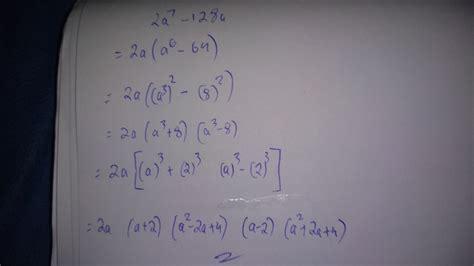 2a⁷ - 128a
= 2a (a⁶ - 64)
= 2a ((a³)² - (8)²)
= 2a (a³+8) (a³-8)
= 2a [(a)³ + (2)³ (a)³ - (2)³]
= 2a (a+2) (a²-2a+4) (a-2) (a²+2a+4)